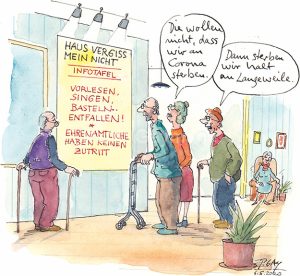 HAUS VERGISS
MEIN NICHT
INFOTAFEL
VORLESEN,
SINGEN,
BASTELN..
ENTFALLEN!
*
EHRENAMTLICHE
HABEN KEINEN
ZUTRITT
Die wollen
nicht, dass
wir an
Corona
sterben.
Dann sterben
wir halt
an Langeweile.